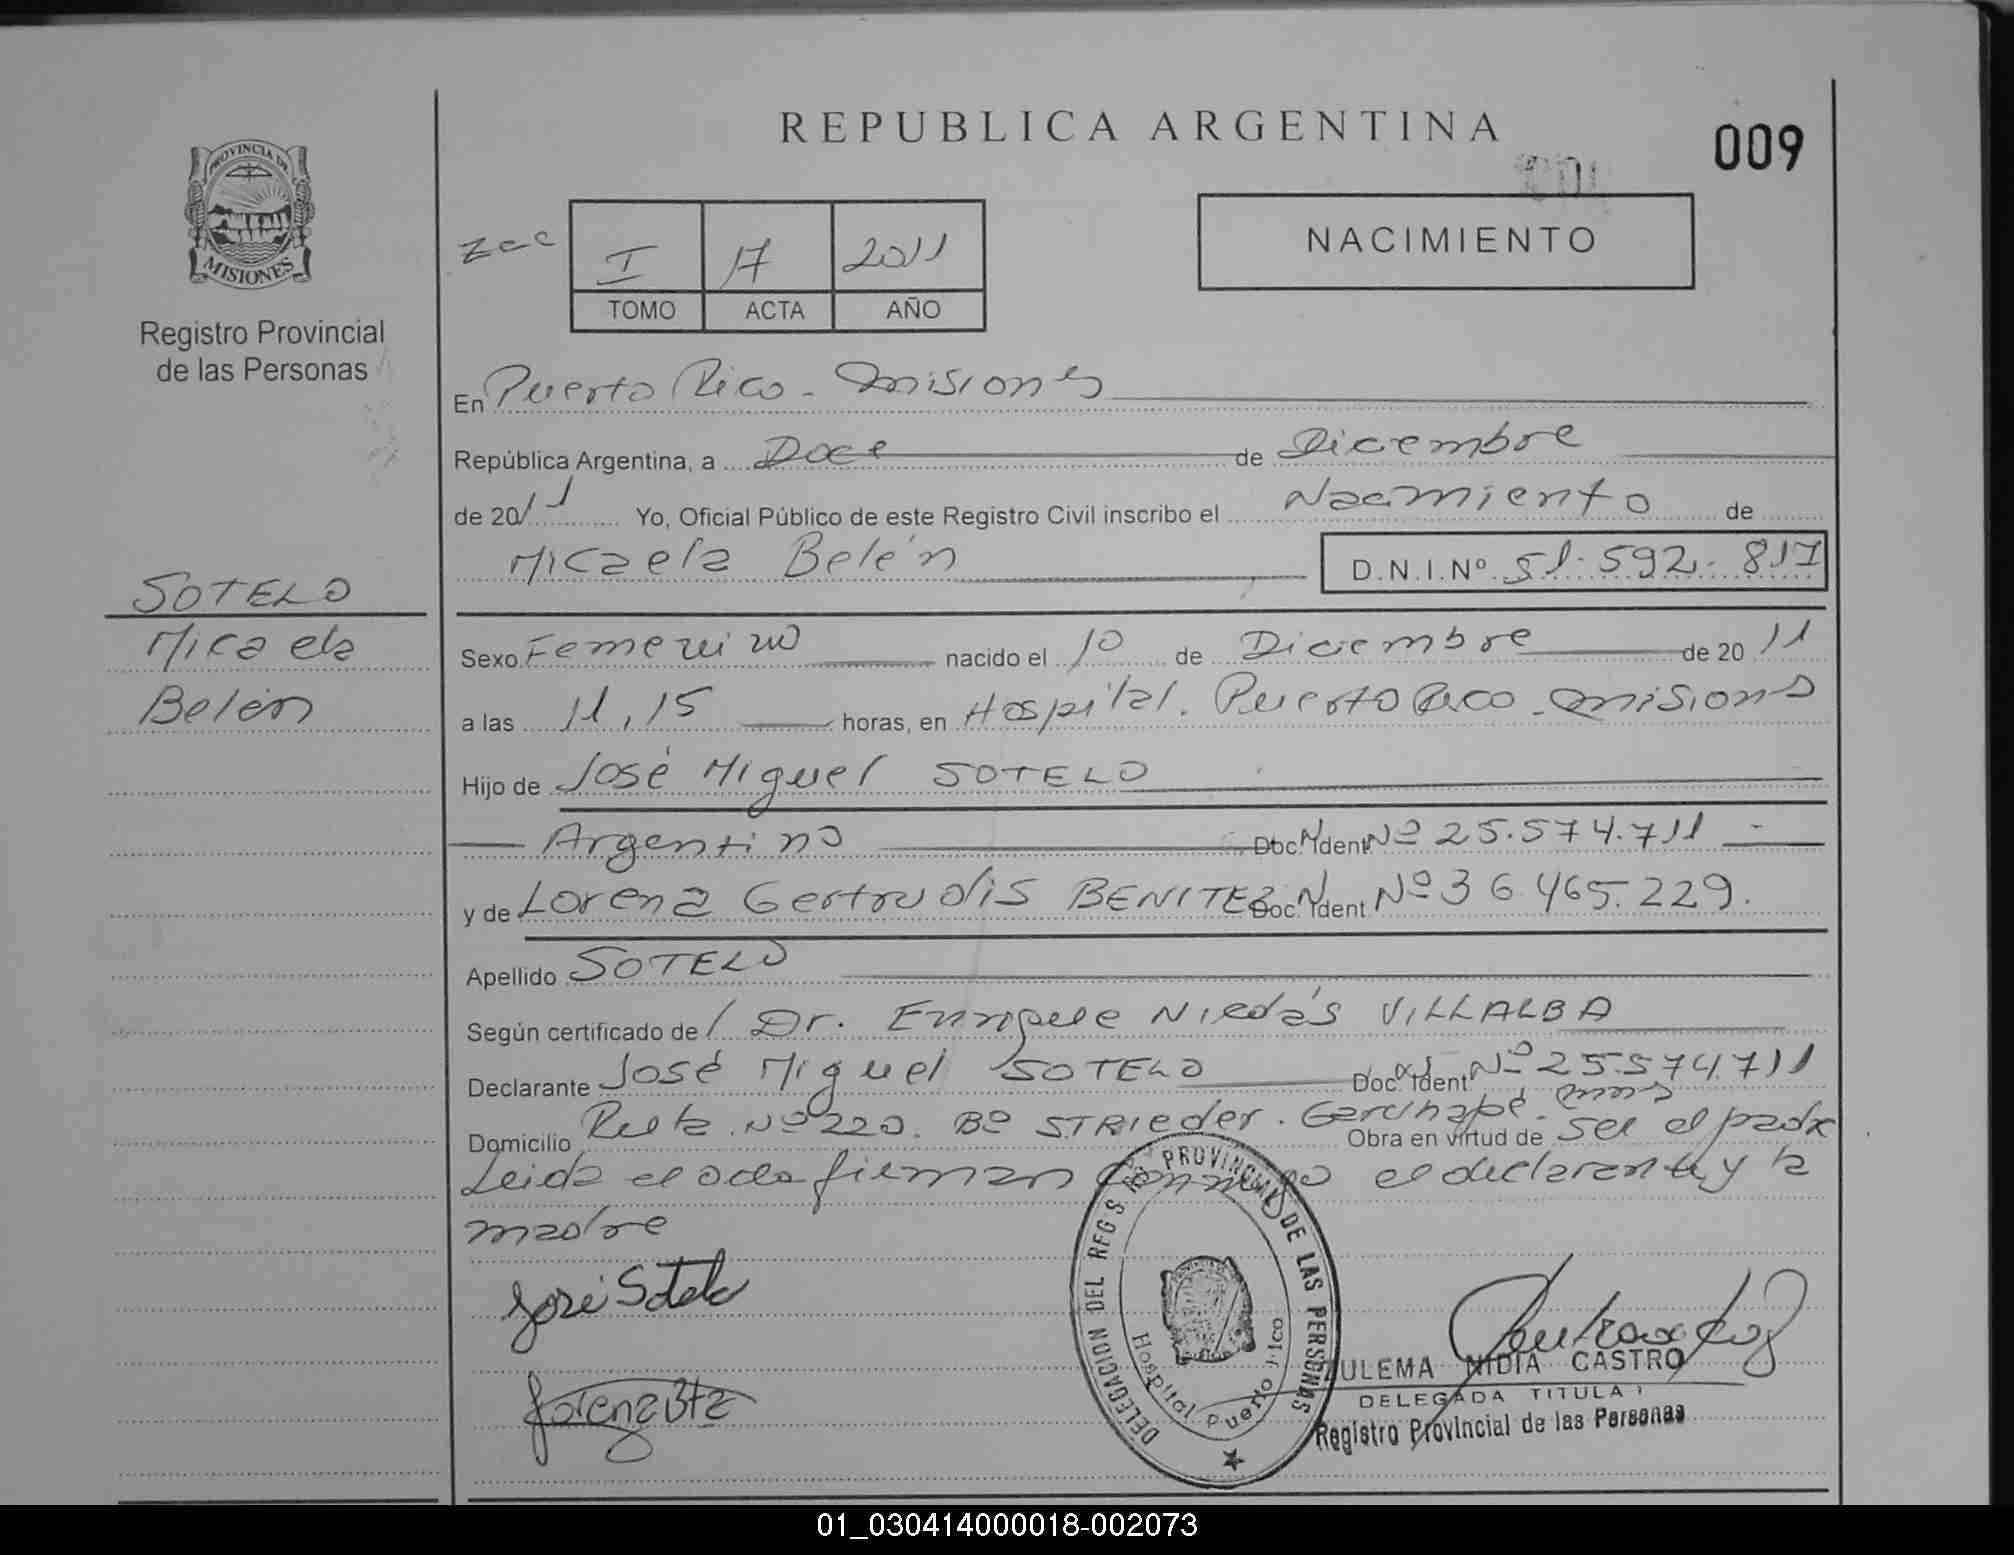 REPUBLICA ARGENTINA
009
PROVINCIA DE
MISIONES
Registro Provincial
de las Personas
I 17 2011
TOMO ACTA AÑO
NACIMIENTO
En Puerto Rico - Misiones
República Argentina, a Doce de Diciembre
de 2011 Yo, Oficial Público de este Registro Civil inscribo el Nacimiento de
Micaela Belén D.N.I.Nº 51.592.817
SOTELO
Micaela
Belén
Sexo Femenino nacido el 10 de Diciembre de 2011
a las 11,15 horas, en Hospital. Puerto Rico - Misiones
Hijo de José Miguel SOTELO
Argentino Doc. Ident Nº 25.574.711
y de Lorena Gertrudis BENITEZ Doc. Ident Nº 36.465.229.
Apellido SOTELO
Según certificado de Dr. Enrique Nicolás VILLALBA
Declarante José Miguel SOTELO Doc. Ident Nº 25.574.711
Domicilio Ruta Nº 220. Bº STRIEDER. Garuhapé. Mnes Obra en virtud de ser el padre
Leida el acta firman conmigo el declarante y la
madre
José Sotelo
Lorena Btz
DELEGACION DEL REG PROVINCIAL DE LAS PERSONAS
Hospital Puerto Rico
ZULEMA NIDIA CASTRO
DELEGADA TITULAR
Registro Provincial de las Personas
01_030414000018-002073